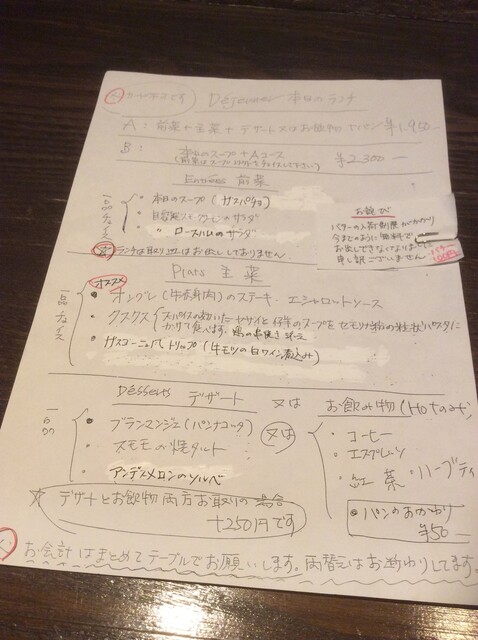 Déjeuner 本日のランチ
A: 前菜+主菜+デザート又はお飲物 ¥1,950-
B: 本日のスープ+Aコース ¥2,300-
(前菜はスープ以外をチョイスして下さい)
Entrées 前菜
一品チョイス
・本日のスープ(ガスパチョ)
・自家製スモークサーモンのサラダ
・〃 ロースハムのサラダ
ランチは取り皿はお出ししておりません。
お詫び
バターの入荷制限がかかり
今までのように無料で
お出しできなくなりました
申し訳ございません
バター
100円
Plats 主菜
オススメ
一品チョイス
・オングレ(牛横身肉)のステーキ エシャロットソース
・クスクス スパイスの効いたヤサイと仔羊のスープをセモリナ粉の粒状パスタに
かけて食べます。鶏の串焼き 添え
・ガスコーニュ風トリップ(牛モツの白ワイン煮込み)
Desserts デザート 又は お飲み物(Hotのみ)
一品
・ブランマンジェ(パンナコッタ)
・スモモの焼タルト
・アンデスメロンのソルベ
又は
・コーヒー
・エスプレッソ
・紅茶・ハーブティ
☆デザートとお飲物両方お取りの場合
+250円です
・パンのおかわり
¥50-
お会計はまとめてテーブルでお願いします。両替はお断わりしてます。